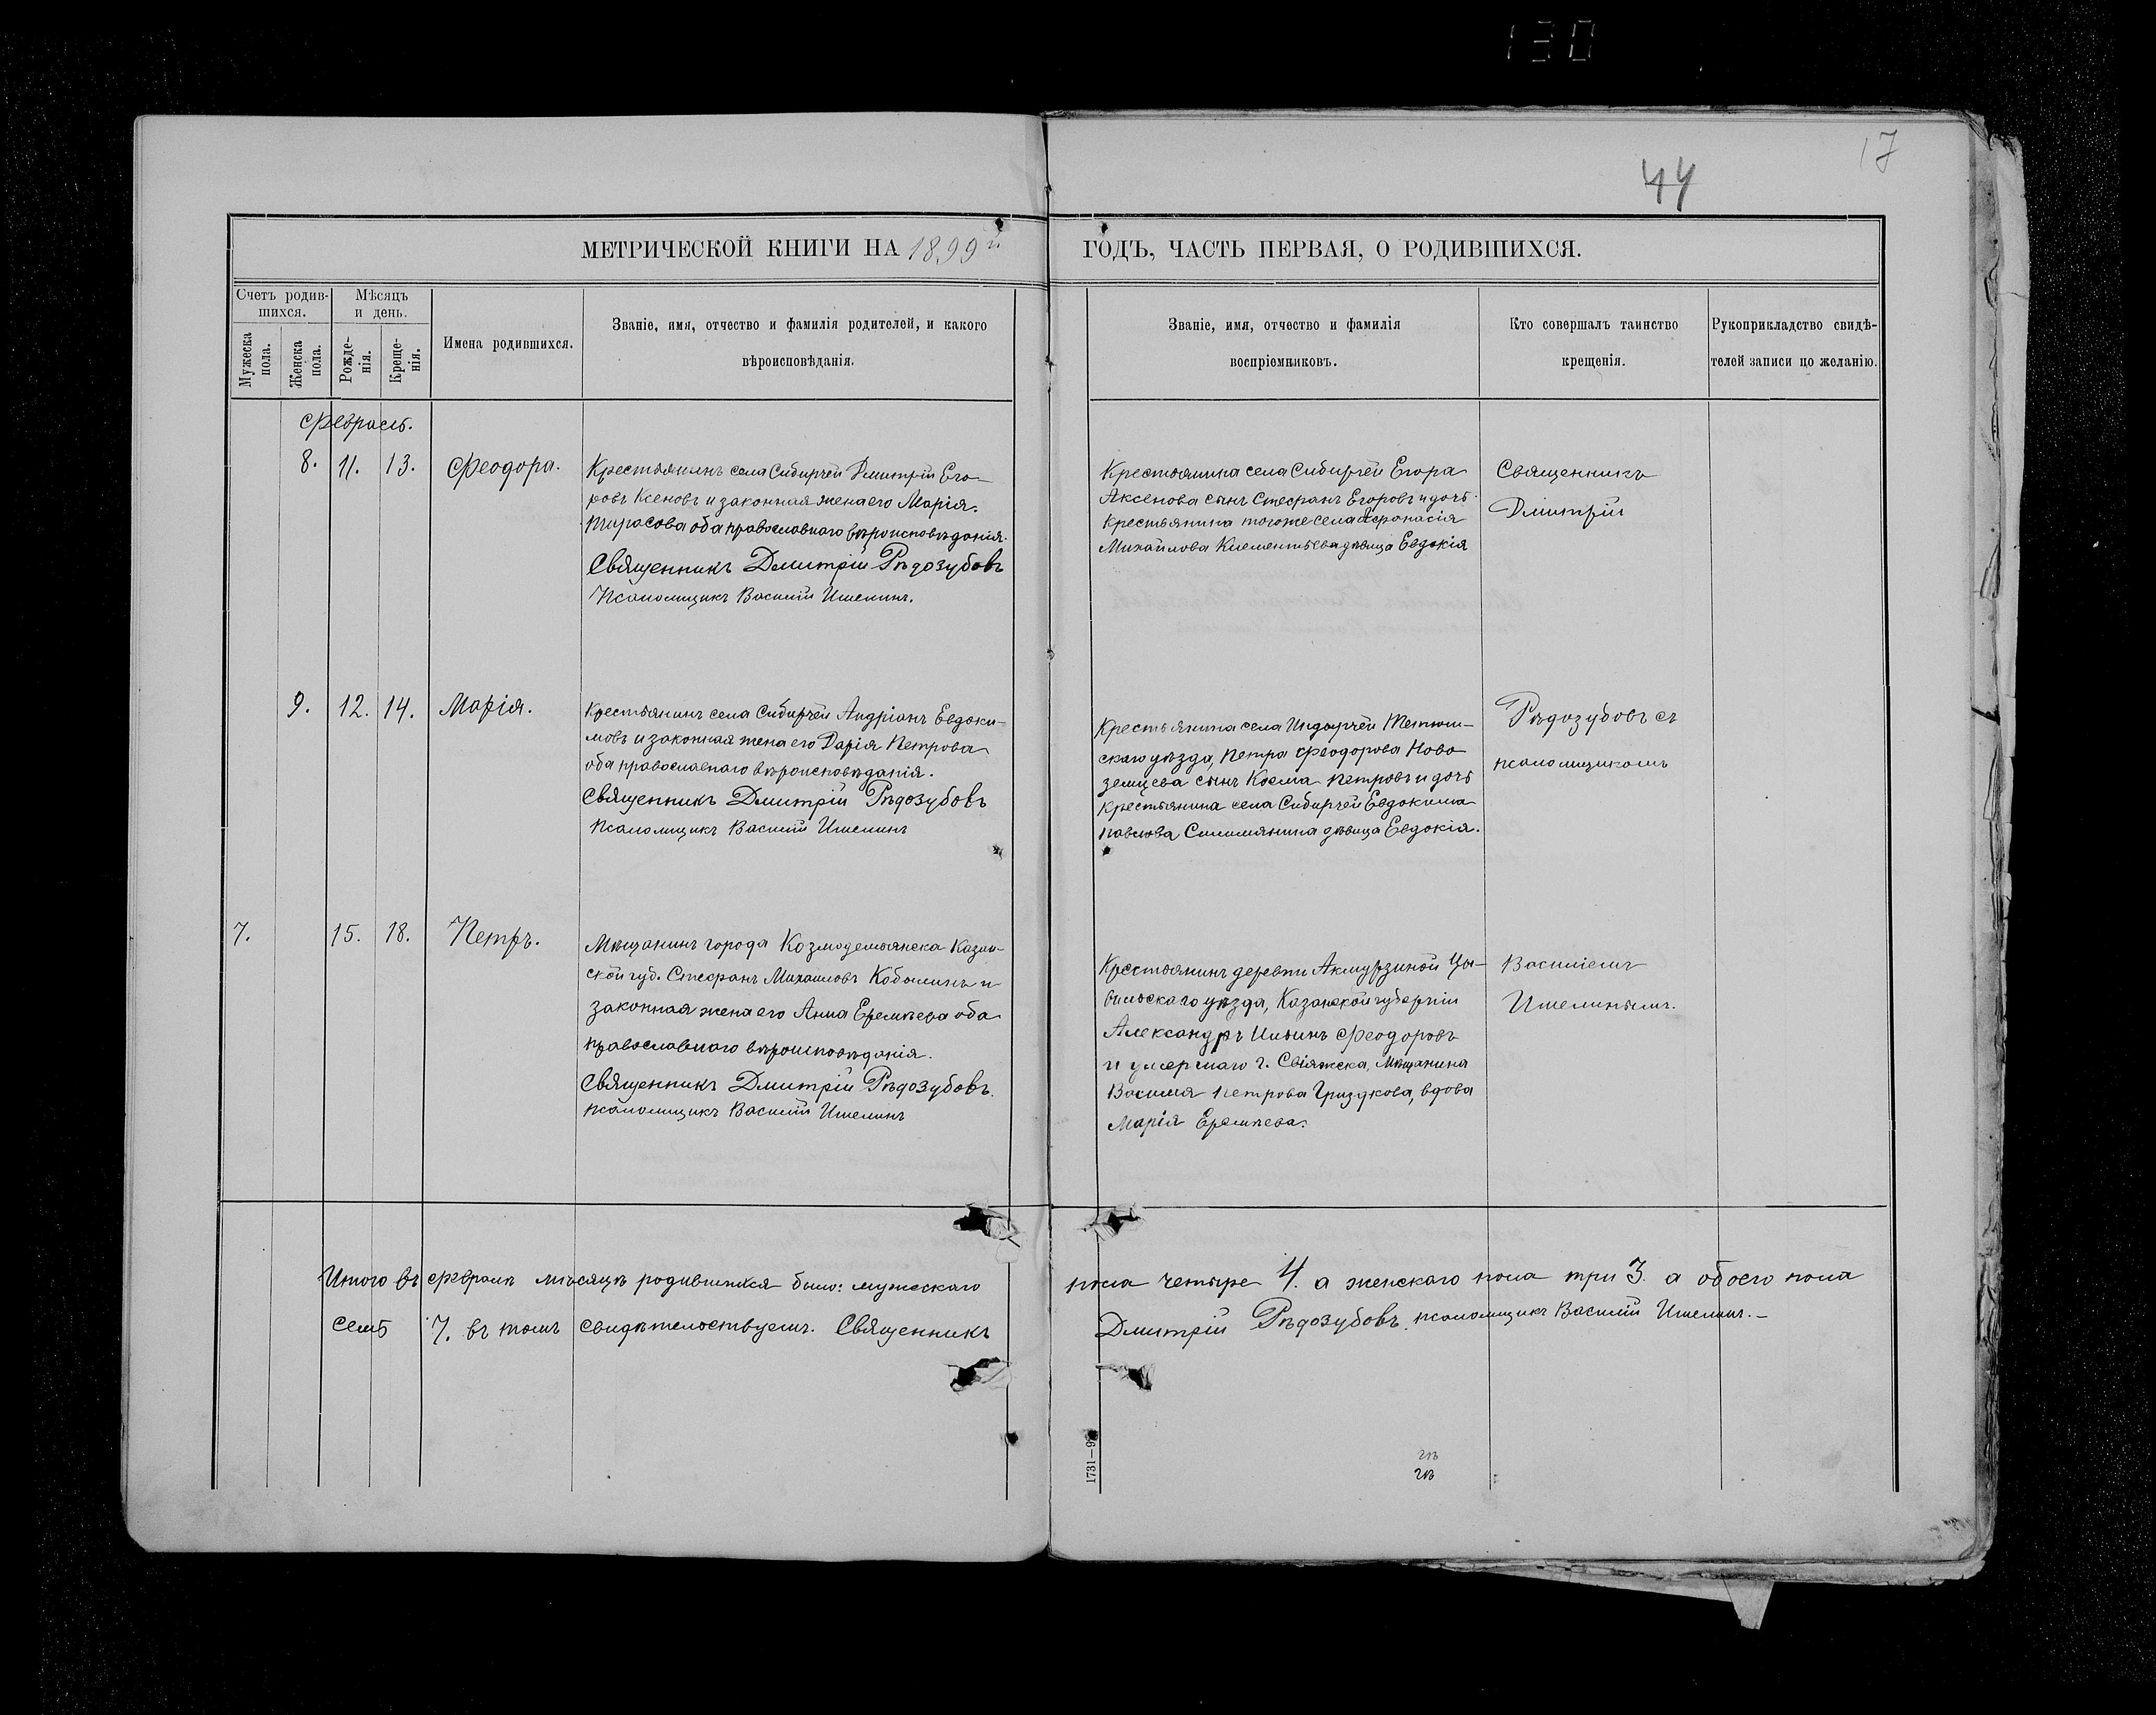 130
17
44
МЕТРИЧЕСКОЙ КНИГИ НА 1899й ГОДЪ, ЧАСТЬ ПЕРВАЯ, О РОДИВШИХСЯ.
Счетъ родив-
шихся.
Мужеска
пола.
Женска
пола.
Мѣсяцъ
и день.
Рожде-
нія.
Креще-
нія.
Имена родившихся.
Званіе, имя, отчество и фамилія родителей, и какого
вѣроисповѣданія.
Званіе, имя, отчество и фамилія
воспріемниковъ.
Кто совершалъ таинство
крещенія.
Рукоприкладство свидѣ-
телей записи по желанію.
Февраль.
8. 11. 13. Феодора.
Крестьянинъ села Сибирчей Димитрій Его-
ровъ Ксеновъ и законная жена его Марія
Тарасова оба православнаго вѣроисповѣданія.
Священникъ Димитрій Рѣдозубовъ
Псаломщикъ Василій Ишелинъ.
Крестьянина села Сибирчей Егора
Аксенова сынъ Стефанъ Егоровъ и дочь
Крестьянина тогоже села Афонасія
Михайлова Клементьева дѣвица Евдокія
Священникъ
Димитрій
9. 12. 14. Марія.
Крестьянинъ села Сибирчей Андріанъ Евдоки-
мовъ и законная жена его Дарія Петрова
оба православнаго вѣроисповѣданія.
Священникъ Димитрій Рѣдозубовъ
Псаломщикъ Василій Ишелинъ
Крестьянина села Индырчей Тетюш-
скаго уѣзда, Петра Феодорова Ново-
земцева сынъ Косма Петровъ и дочь
Крестьянина села Сибирчей Евдокима
Павлова дѣвица Евдокія.
Рѣдозубовъ съ
псаломщикомъ
7. 15. 18. Петръ.
Мѣщанинъ города Козмодемьянска Казан-
ской губ. Стефанъ Михаиловъ Кобылинъ и
законная жена его Анна Еремѣева оба
православнаго вѣроисповѣданія.
Священникъ Димитрій Рѣдозубовъ.
Псаломщикъ Василій Ишелинъ
Крестьянинъ деревни Акмурзиной Цы-
вильскаго уѣзда, Казанской губерніи
Александръ Ильинъ Феодоровъ
и умершаго г. Свіяжска, Мѣщанина
Василія Петрова вдова
Марія Еремѣева.
Василіемъ
Ишелинымъ.
Итого въ февралѣ мѣсяцѣ родившихся было: мужескаго пола четыре 4. а женскаго пола три 3. а обоего пола
семь 7. въ томъ свидѣтельствуемъ. Священникъ Димитрій Рѣдозубовъ. псаломщикъ Василій Ишелинъ.-